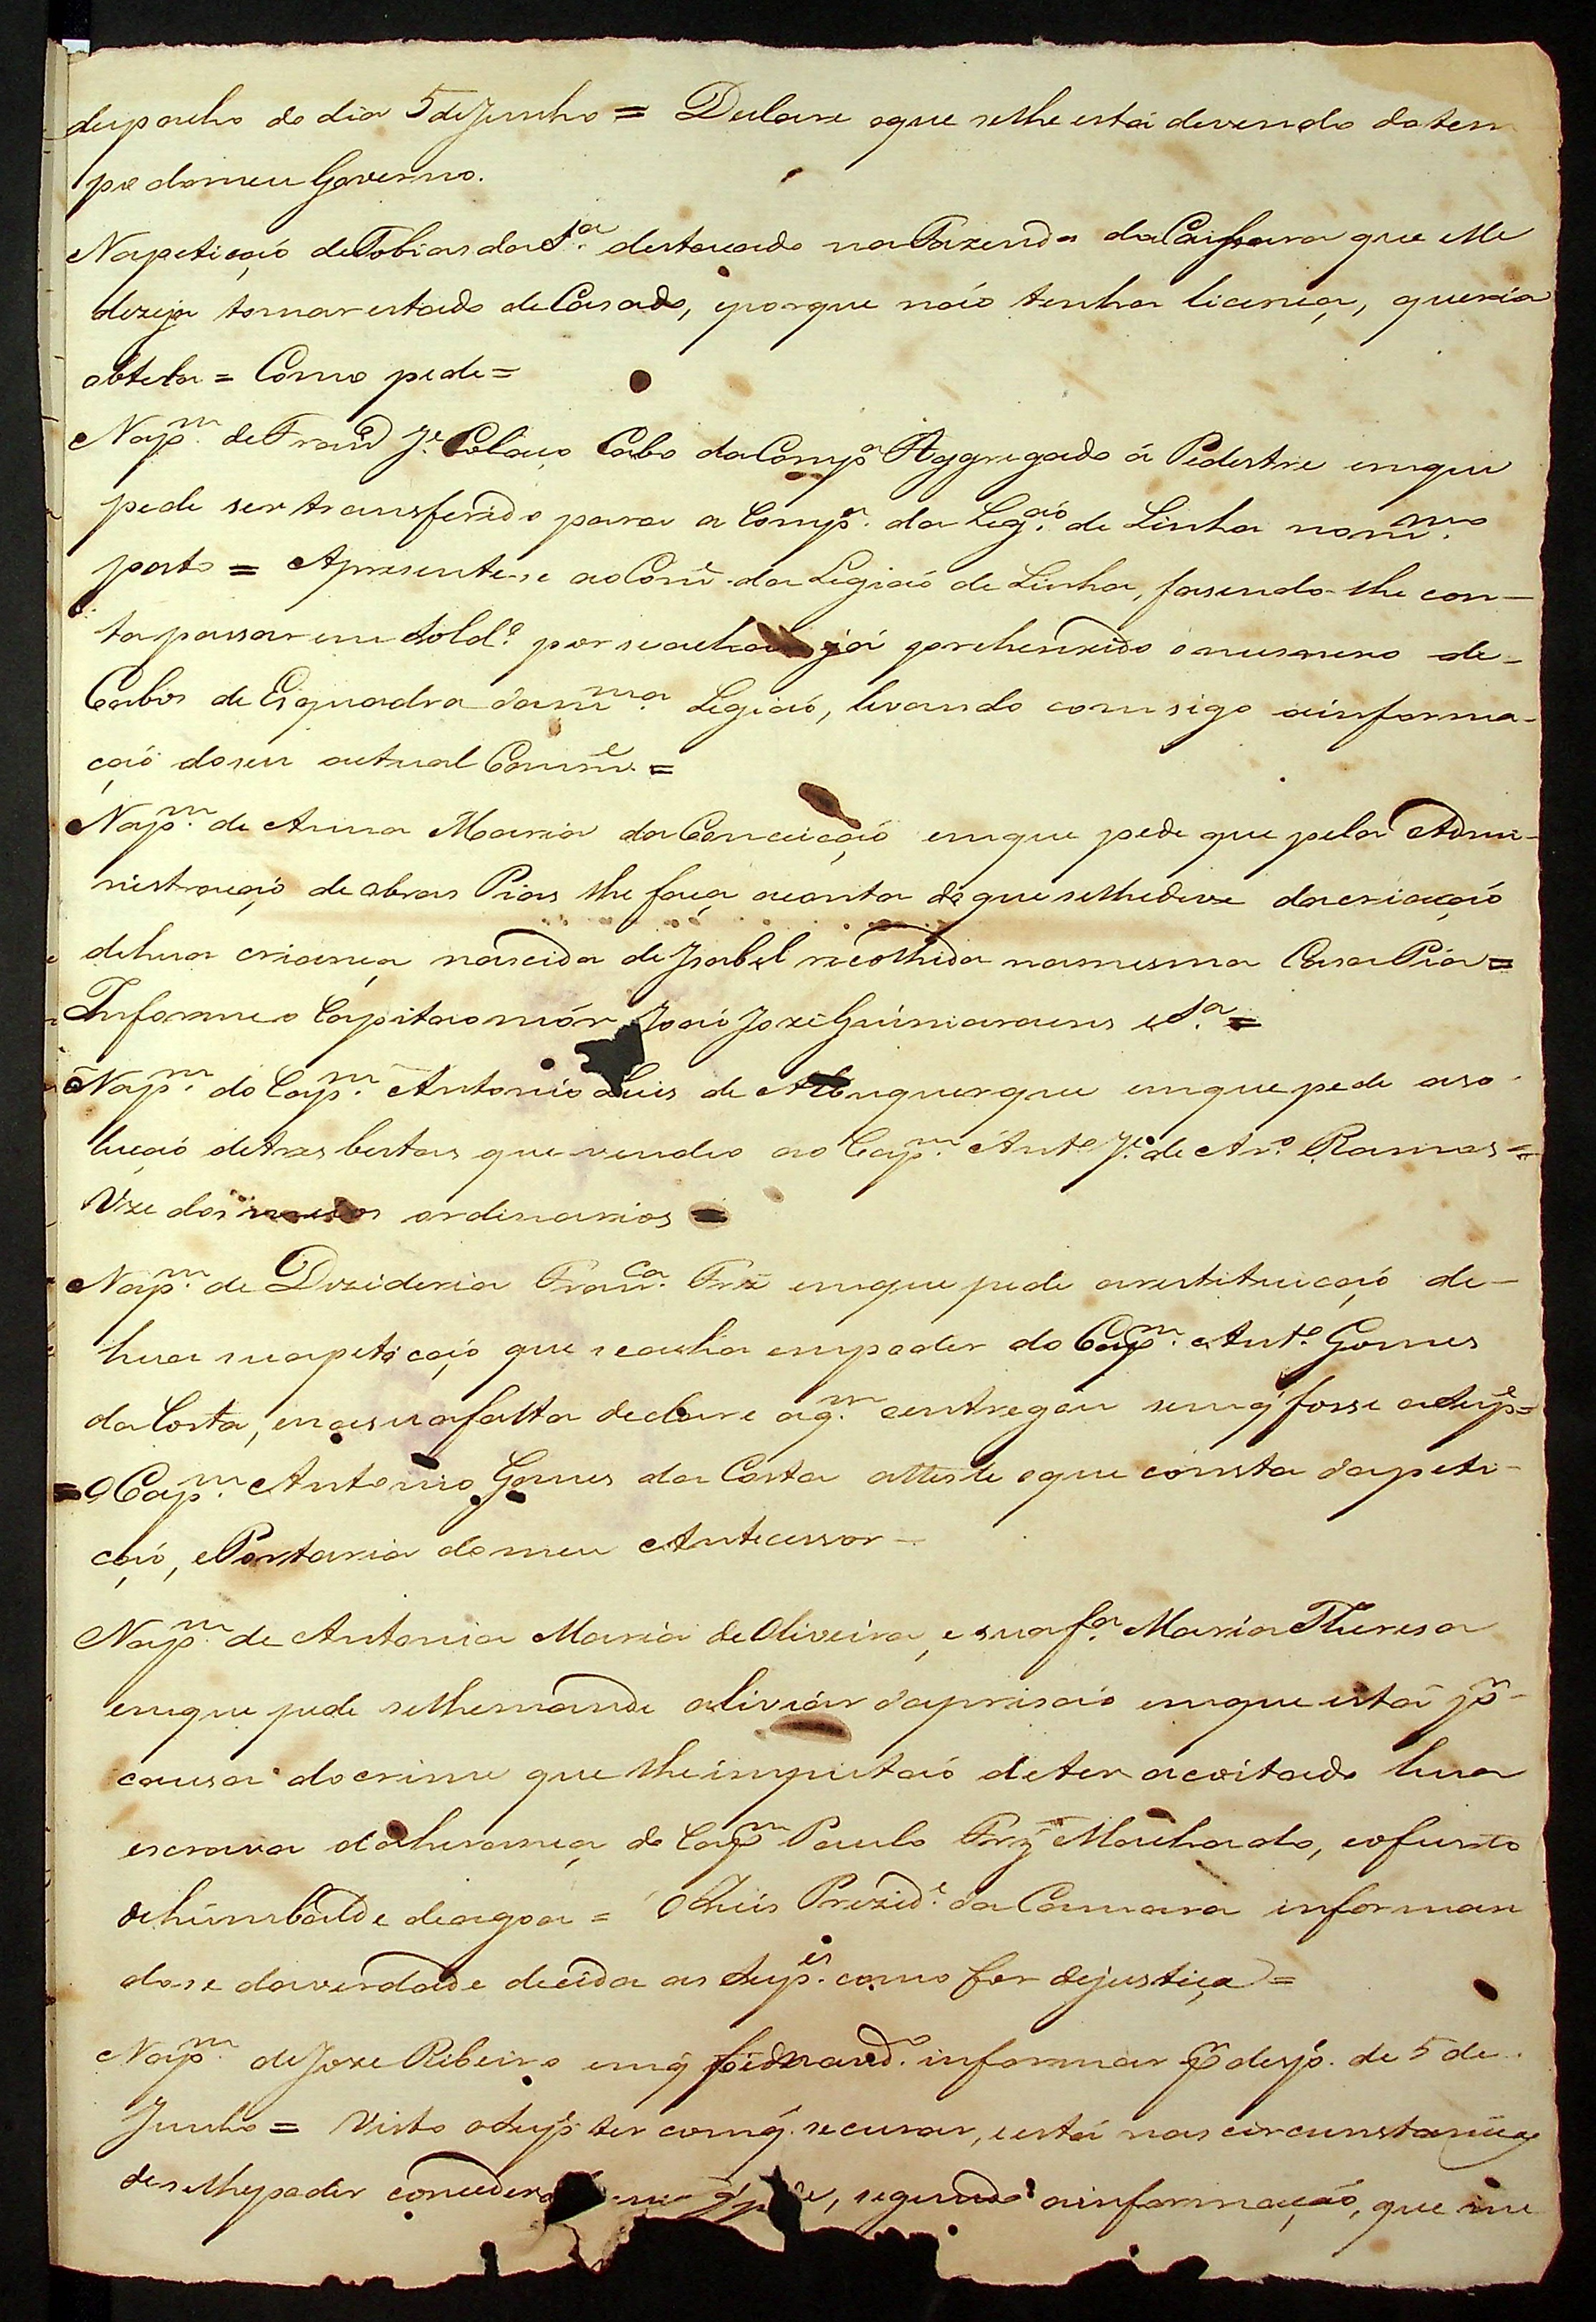 despacho do dia 5 de Junho = Declare o que se lhe está devendo do tem
po do meu Governo.
Na petiçaõ de Tobias da S.ª destacado na Fazenda da Caissara que elle
dezeja tomar estado de Casado, e porque naõ tenha licença, queria
obtela = Como pede =
Na p.m de Fran.co J.e Colaço Cabo da Comp.ª Aggregado á Pedestre em que
pede ser transferido para a Comp.ª da Leg.aõ de Linha no m.mo
posto = Apresente-se ao Com.e da Legiaõ de Linha, fasendo-lhe con-
ta passar em Sold.º por se achar já prehenxido o numero de-
Cabos de Esquadra da m.ma Legiaõ, levando com sigo a informa-
çaõ do seu actual Comm.e =
Na p.m de Anna Maria da Conceiçaõ em que pede que pela Admi-
nistraçaõ de obras Pias lhe faça a conta do que se lhe deve da criaçaõ
de hua criança nascida de Isabel recolhida na mesma Casa Pia =
Informe o Capitaõ mór Joaõ Joze Guimaraens e S.ª =
Na p.m do Cap.m Antonio Luis de Albuquerque em que pede a so
luçaõ de tres bestas que vendeo ao Cap.m Ant.º J.e de Ar.º Ramos =
Uze dos meios ordinarios =
Na p.m de Dezideria Fran.ca Frz em que pede a restituiçaõ de-
hua sua petiçaõ que se acha em poder do Cap.m Ant.º Gomes
da Costa, e na sua falta declare a q.m a entregou sem q̃ fosse a Sup.e =
= O Cap.m Antonio Gomes da Costa atteste o que consta da peti-
çaõ, e Portaria do meu Antecessor -
Na p.m de Antonia Maria de Oliveira, e sua f.ª Maria Theresa
em que pede se lhe mande aliviár da prisaõ em que está p.r
causa do crime que lhe imputaõ de ter acoitado hua
escrava da herança do Cap.m Paulo Frz̃ Machado, e o furto
de hum balde de agoa = O Juis Prezid.e da Camara informan
dose da verdade decida as Sup.es como for de justiça =
Na p.m de Joze Ribeiro em q̃ foi mand.º informar p.r desp.º de 5 de
Junho = Visto o Sup.e ter com q̃ se curar, e está nas circunstancias
de se lhe poder conceder q̃ pede, segundo a informaçaõ, que me